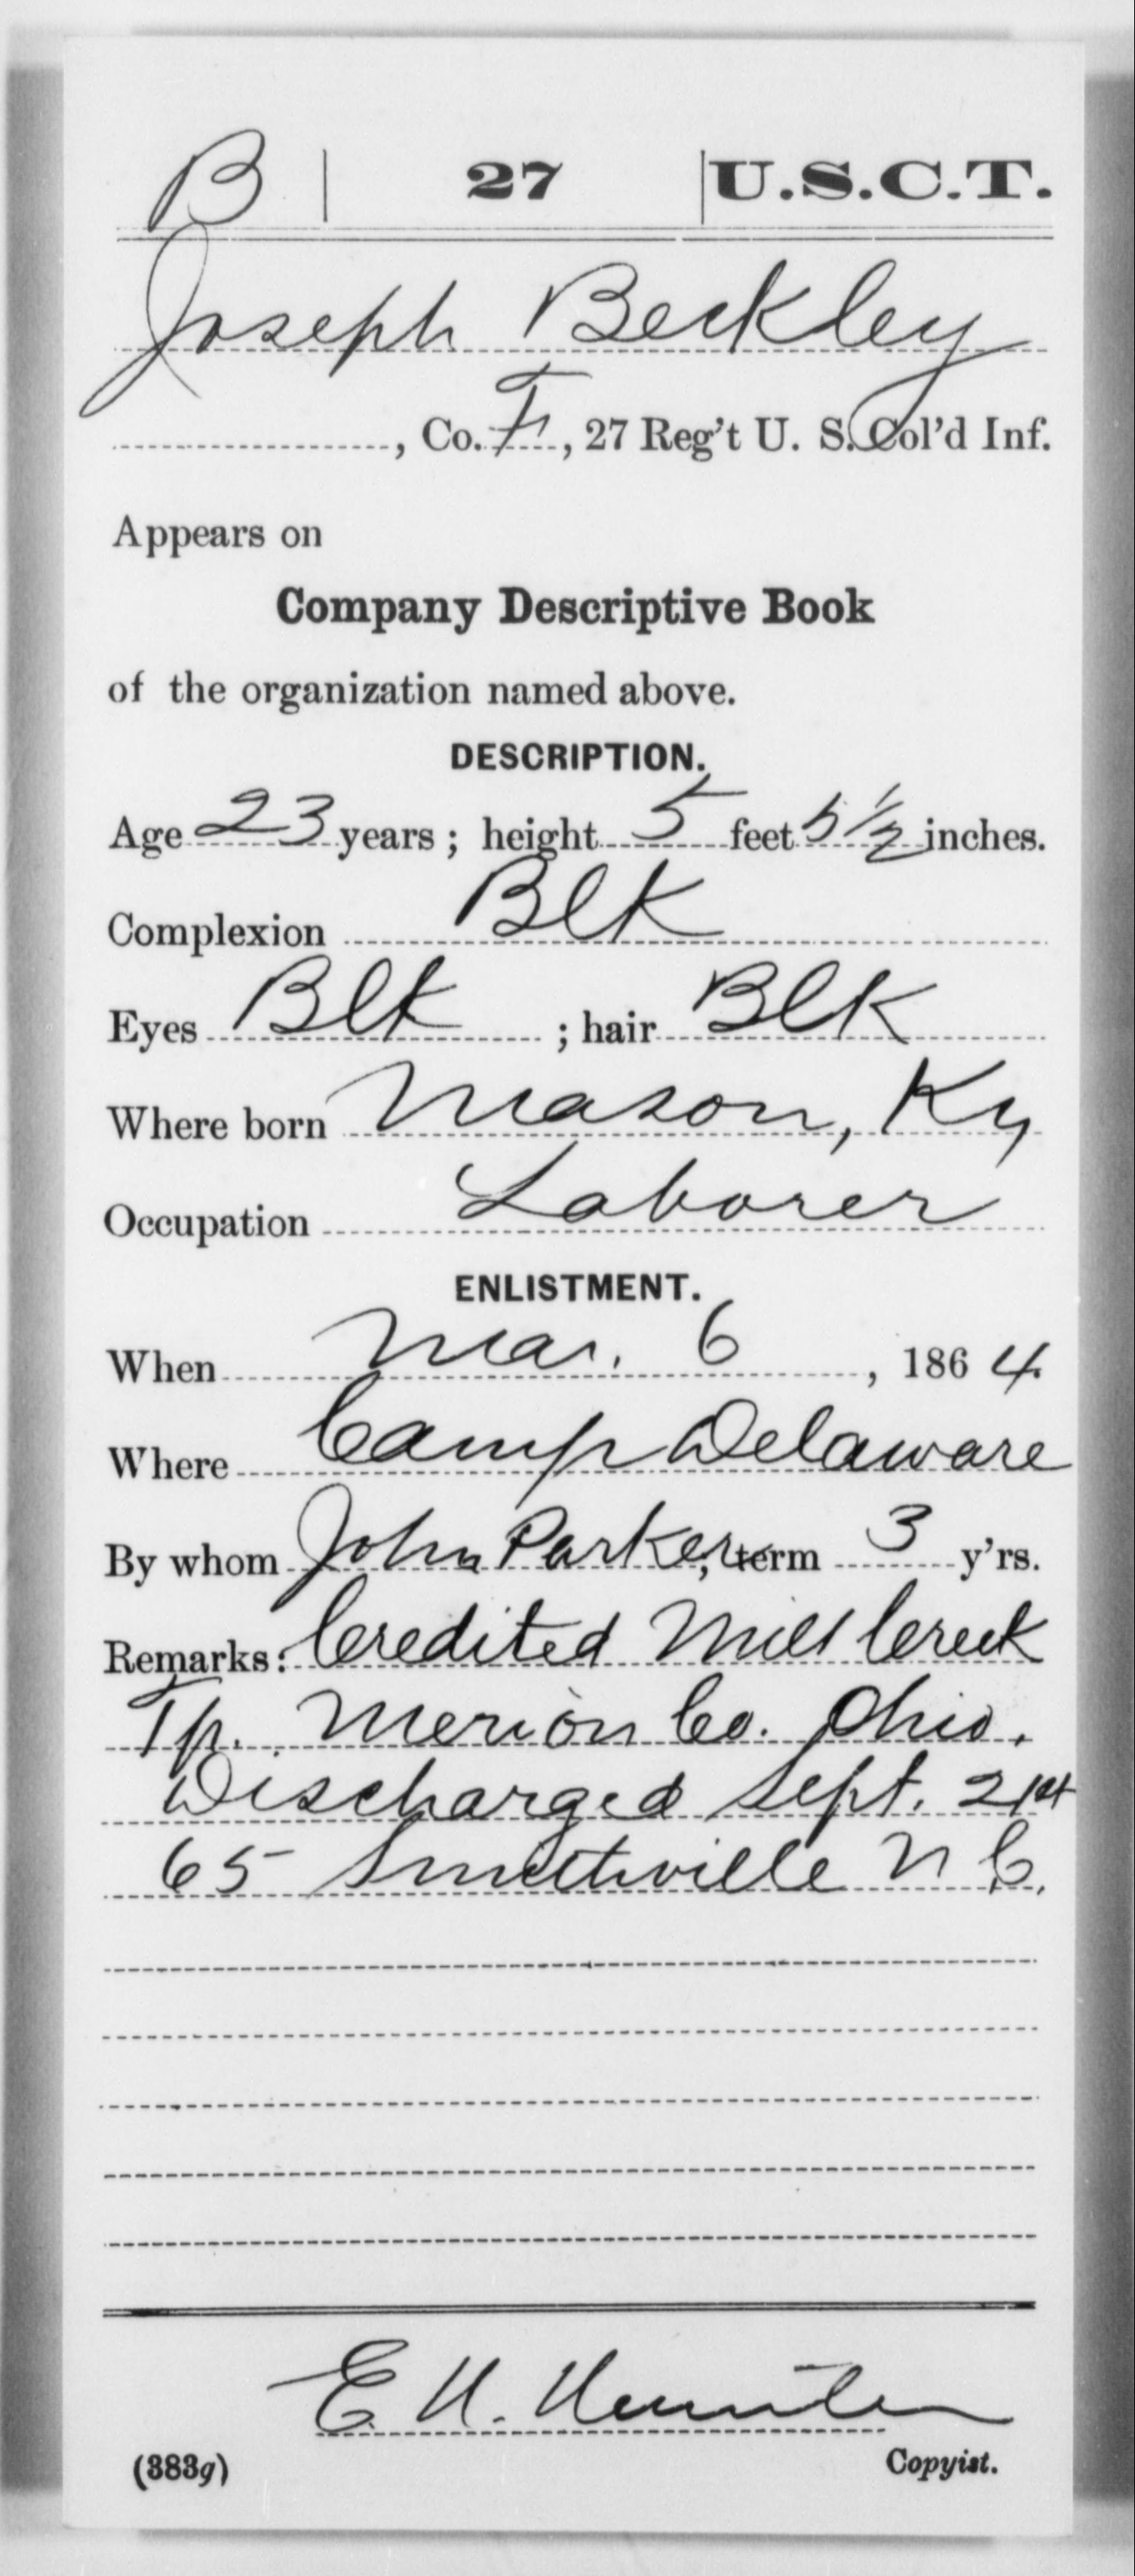 B | 27 | U.S.C.T.
Joseph Beckley
, Co. F, 27 Reg't U. S. Col'd Inf.
Appears on
Company Descriptive Book
of the organization named above.
DESCRIPTION.
Age 23 years; height 5 feet 5 1/2 inches.
Complexion Blk
Eyes Blk; hair Blk
Where born Mason, Ky
Occupation Laborer
ENLISTMENT.
When Mar. 6, 1864.
Where Camp Delaware
By whom John Parker, term 3 y'rs.
Remarks: Credited Mill Creek
Tp. Merion Co. Ohio.
Discharged Sept. 21st
65 Smithville N C.
E H.
(383g) Copyist.